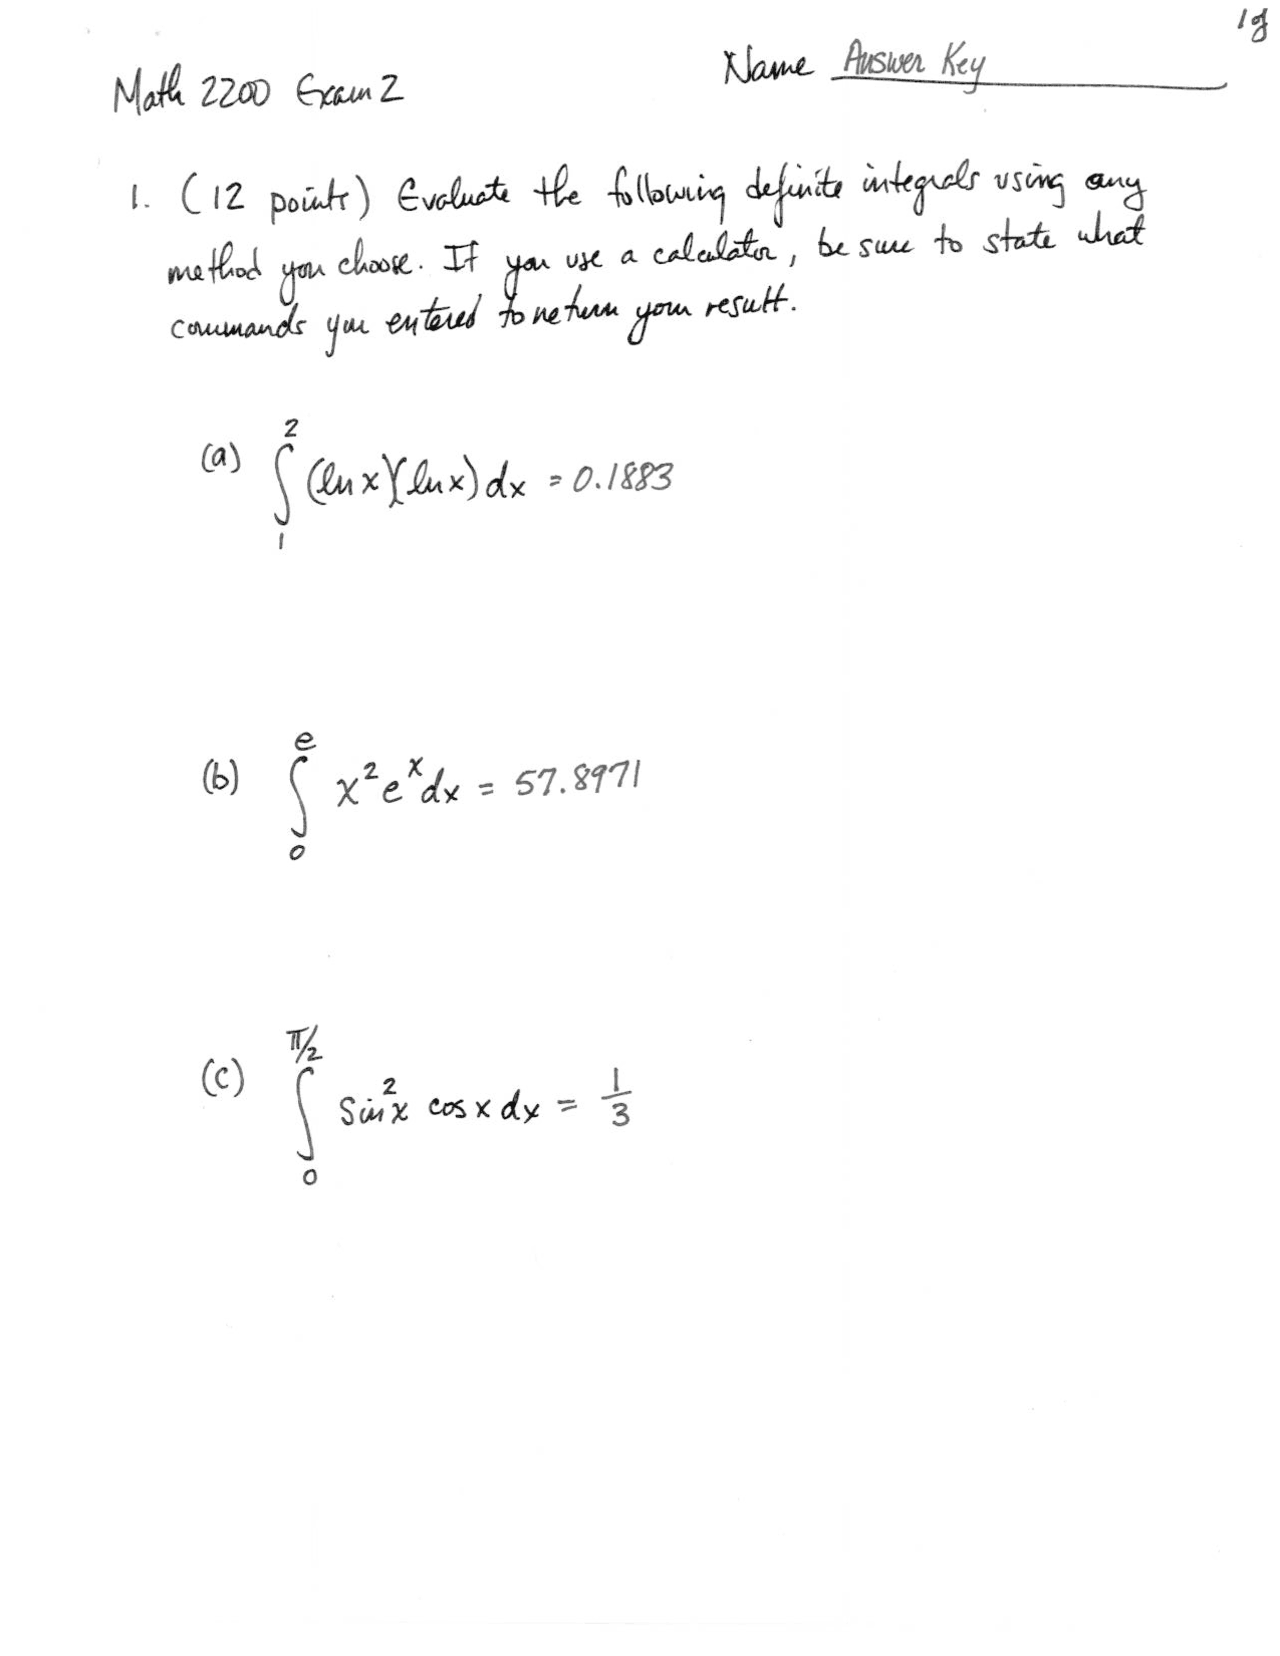 1 of
Name Answer Key
Math 2200 Exam 2
1. (12 points) Evaluate the following definite integrals using any
method you choose. If you use a calculator, be sure to state what
commands you entered to return your result.
(a) ∫₁² (ln x)(ln x) dx = 0.1883
(b) ∫₀ᵉ x² eˣ dx = 57.8971
(c) ∫₀^(π/2) sin²x cos x dx = 1/3